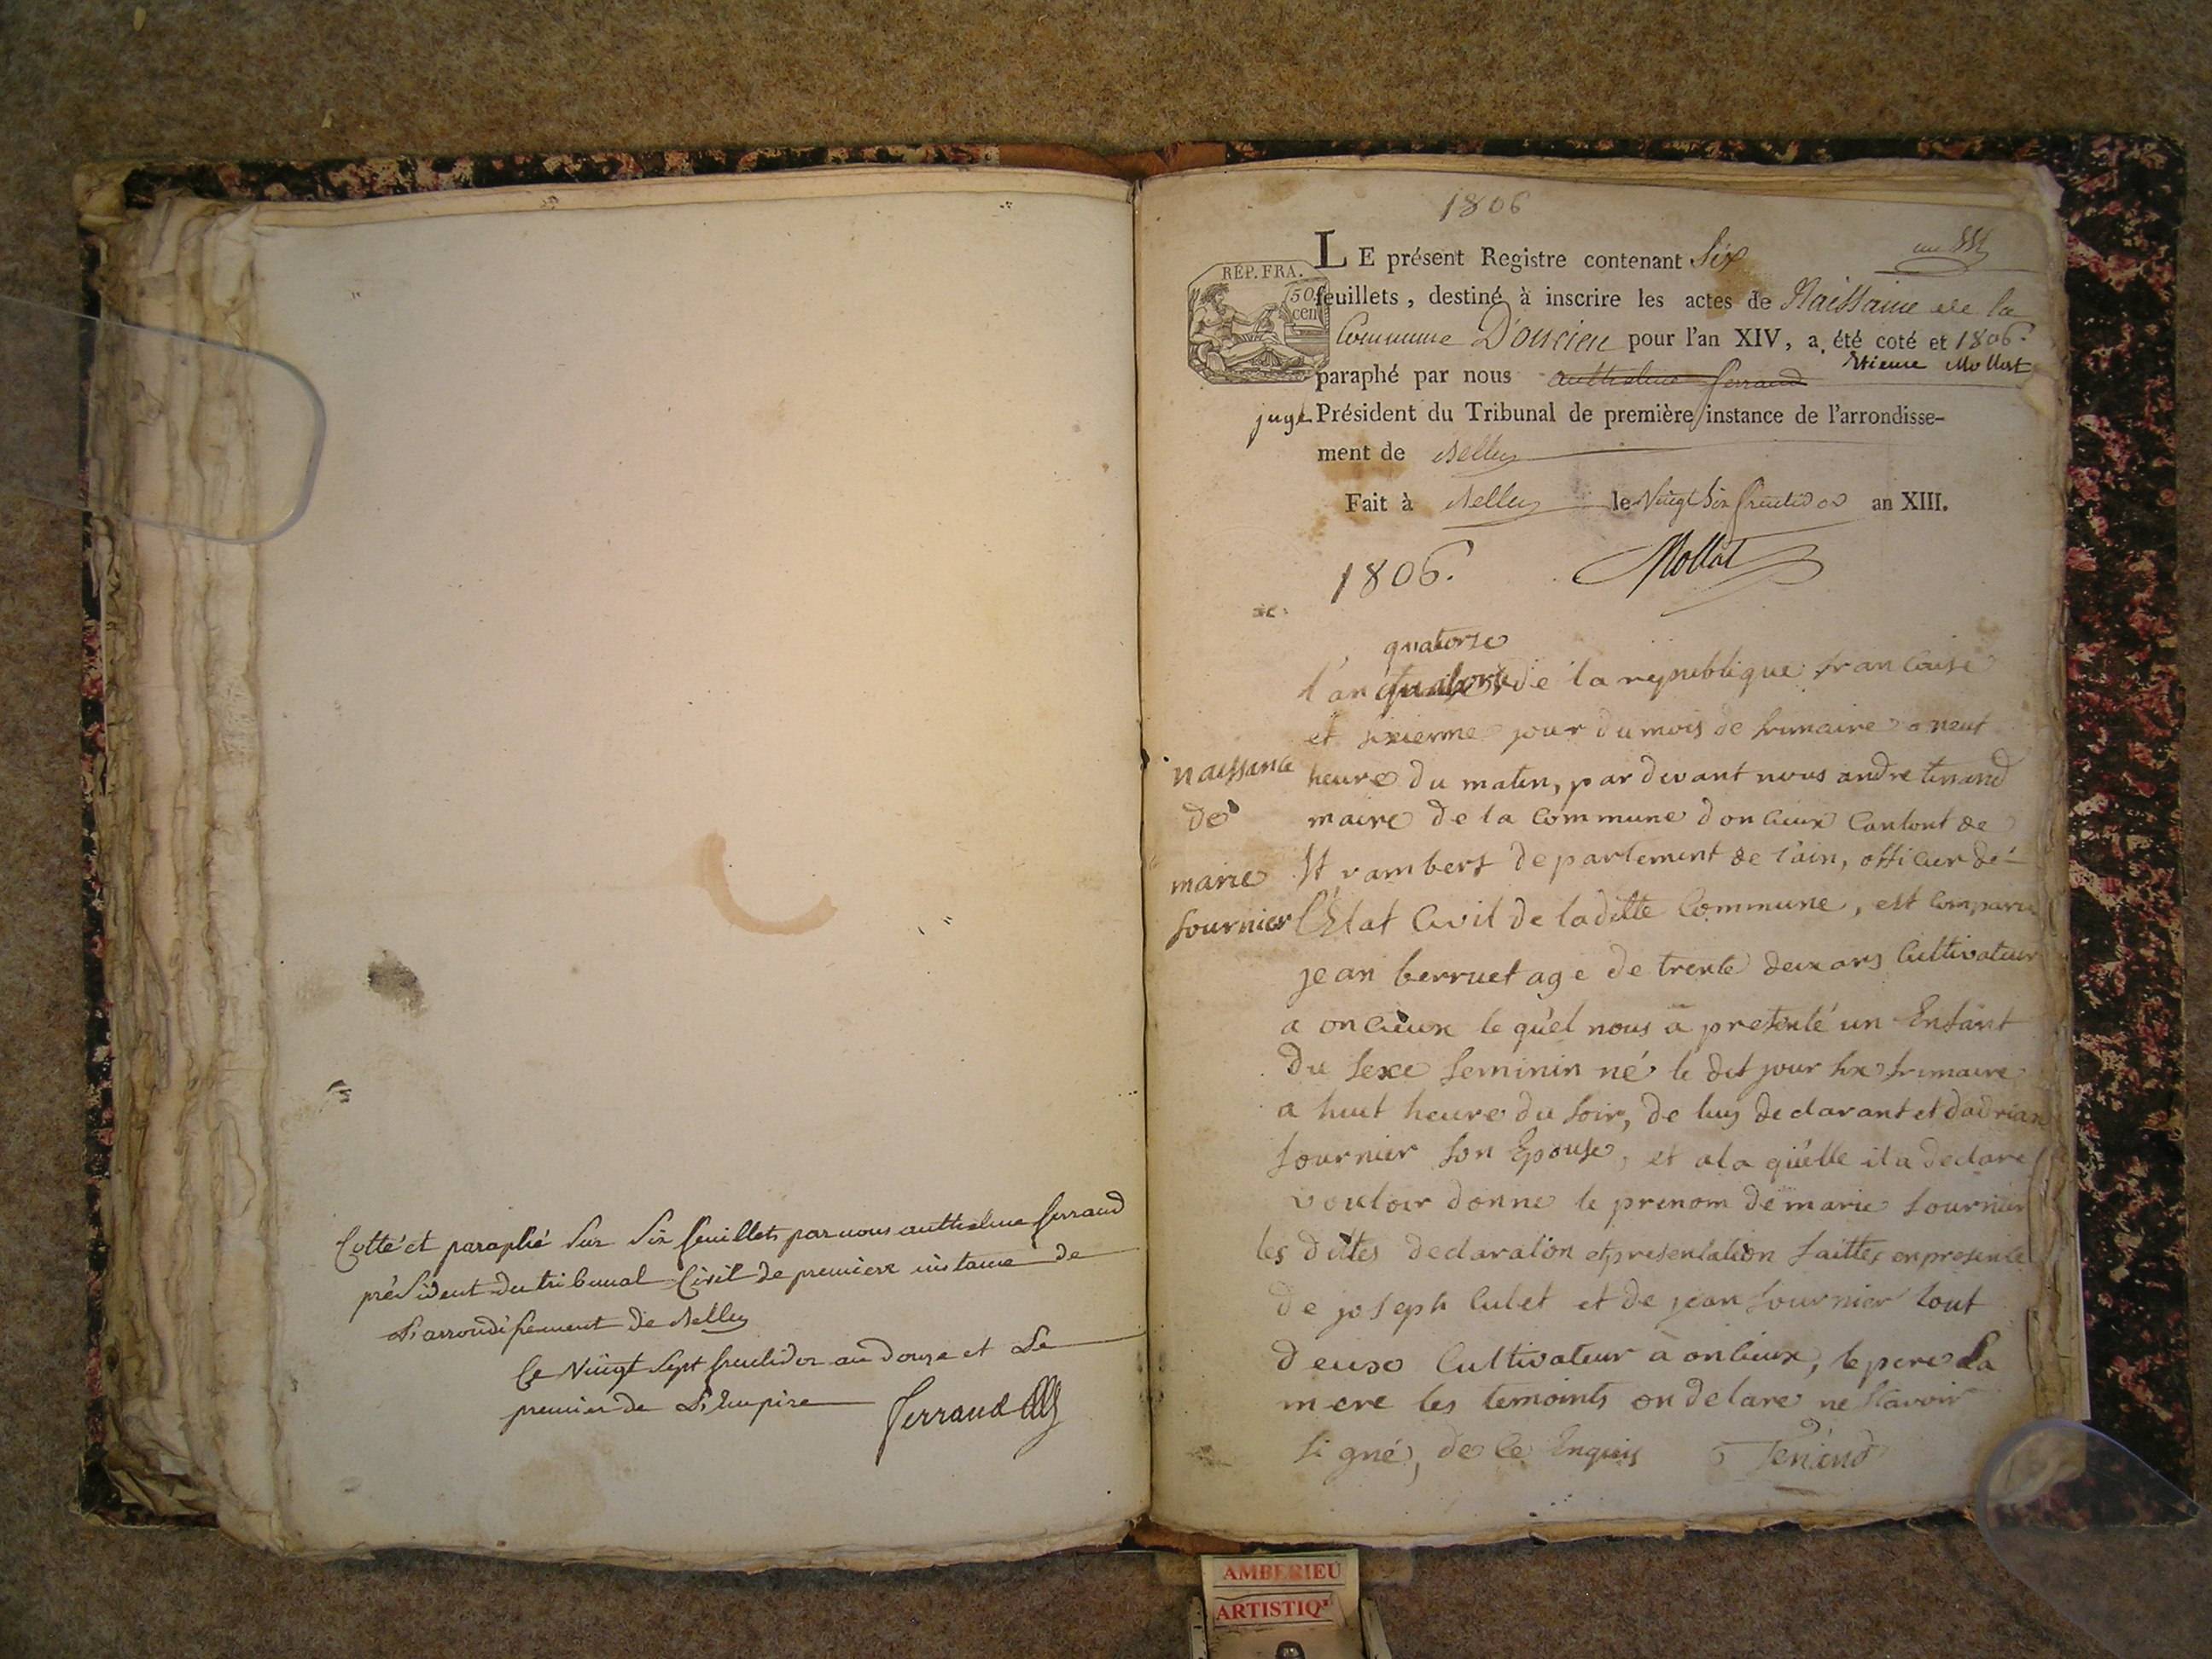 Cotté et paraphé Sur Six feuillets par nous anthelme ferrand
président du tribunal Civil de premiere instance de
L'arrondissement de Belley
Ce Vingt Sept fructidor an douze et Le
premier de L'Empire
Ferrand
1806
LE présent Registre contenant Six
feuillets, destiné à inscrire les actes de Naissance de la
Commune D'oncieu pour l'an XIV, a été coté et 1806.
paraphé par nous anthelme ferrand Etienne Mollat
juge Président du Tribunal de première instance de l'arrondisse-
ment de Belley
Fait à Belley le Vingt Six fructidor an XIII.
REP. FRA.
50
cen
1806. Mollat
quatorze
l'an quatorze de la republique francaise
et sixieme jour du mois de frimaire a neuf
heure du matin, par devant nous andre tenand
maire de la Commune doncieux Cantont de
St rambert departement de l'ain, officier de
L'Etat Civil de laditte Commune, est comparu
jean berruet age de trente deux ans Cultivateur
a oncieux le quel nous a presenté un Enfant
Du sexe feminin né le dit jour six frimaire
a huit heure du soir, de luy declarant et dadrian
fournier son Epouse, et a la quelle il a declare
vouloir donne le prenom de marie fournier
les dittes declaration et presentation faittes en presente
de joseph Cubet et de jean fournier tout
deux Cultivateur a oncieux, le pere La
mere les temoints on delare ne scavoir
signé, de ce Enquis Tenand
naissance
de
marie
fournier
AMBERIEU
ARTISTIQ